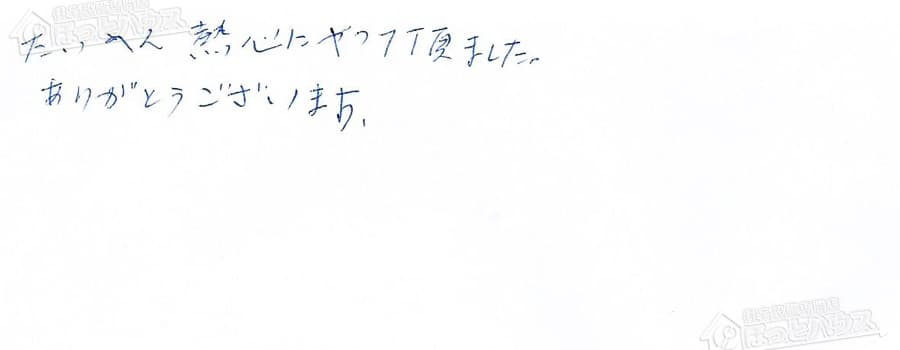 たいへん 熱心にやって頂ました。
ありがとうございます。
住宅設備専門店
ほっとハウス